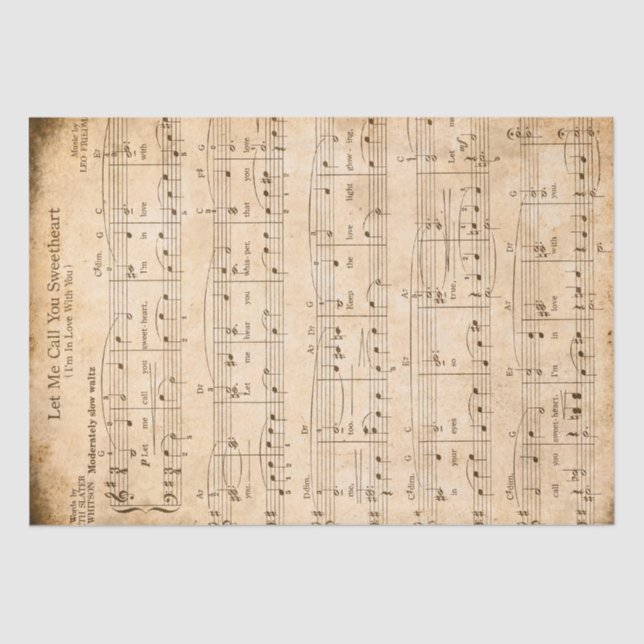 Let Me Call You Sweetheart
(I'm In Love With You)
Words by
TH SLATER
WHITSON
Music by
LEO
Moderately slow waltz
G C♯dim. C E7
p Let me call you sweet-heart, I'm in love with
A7 D7 G F♯ G
you. Let me hear you whis-per, that you love
D.dim. A7 D7 G
me, too. Keep the love light glow-ing,
C♯dim. G E7 A7 C
in your eyes so true, Let me
mf
C♯dim. G E7 A7 D7 G
call you sweet-heart. I'm in love with you.